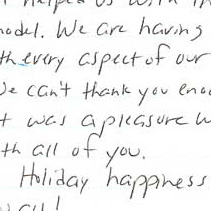 helped us with
model. We are having
every aspect of our
We can't thank you
was a pleasure
all of you.
Holiday happiness
all!